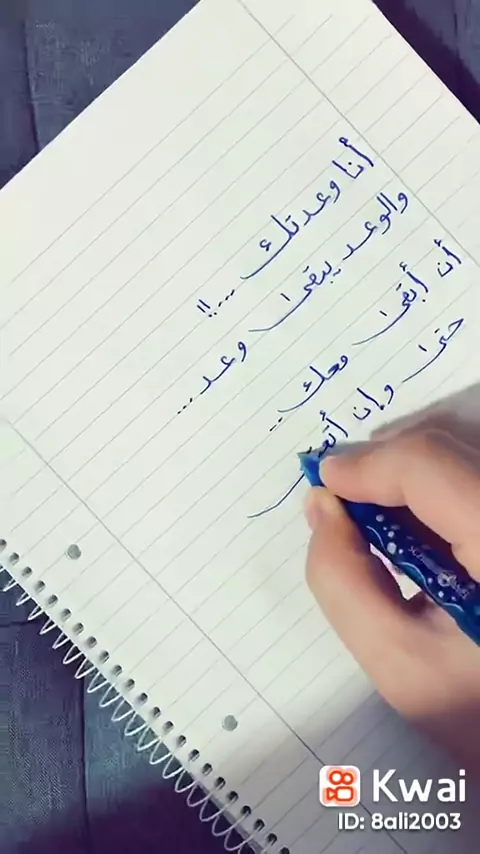 أنا وعدتك ....!!
والوعد يبقىٰ وعد ...
أن أبقىٰ معك ...
حتىٰ وإن
Kwai
ID: 8ali2003